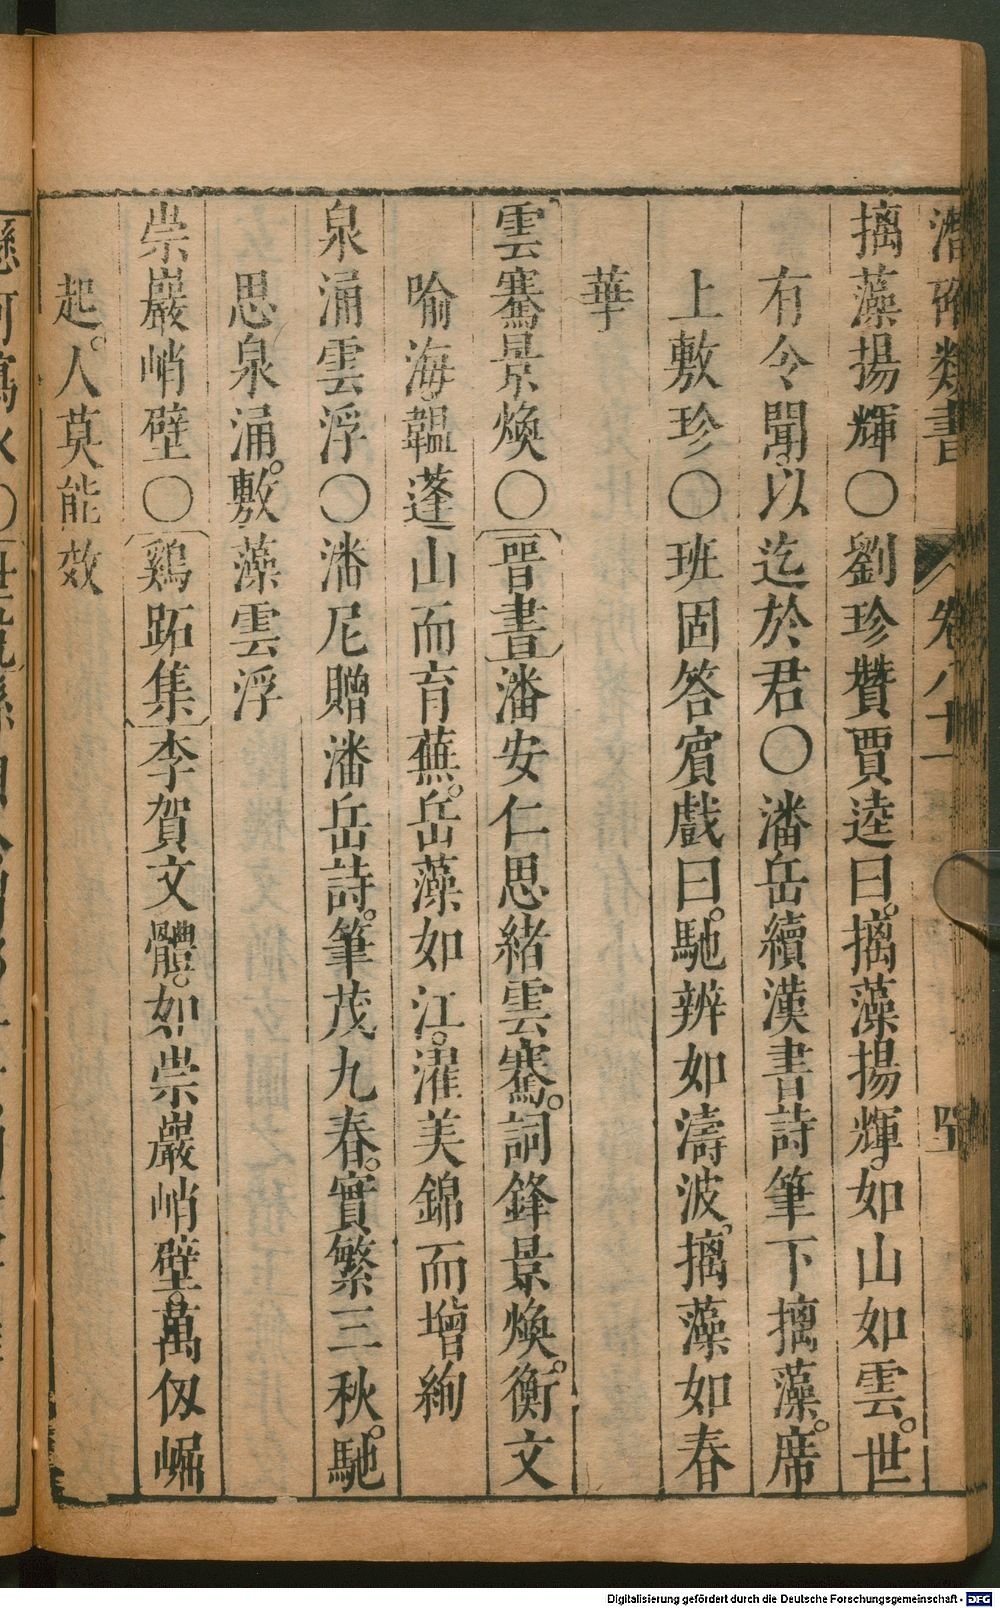 潛確類書 卷八十一
摛藻揚輝○劉珍贊賈逵曰摛藻揚輝如山如雲世
有令聞以迄於君○潘岳續漢書詩筆下摛藻席
上敷珍○班固答賓戲曰馳辨如濤波摛藻如春
華
雲騫景煥○晉書潘安仁思緒雲騫詞鋒景煥衡文
喻海韞蓬山而育蕪岳藻如江濯美錦而增絢
泉涌雲浮○潘尼贈潘岳詩筆茂九春實繁三秋馳
思泉涌敷藻雲浮
崇巖峭壁○雞跖集李賀文體如崇巖峭壁萬仭崛
起人莫能效
Digitalisierung gefördert durch die Deutsche Forschungsgemeinschaft - DFG